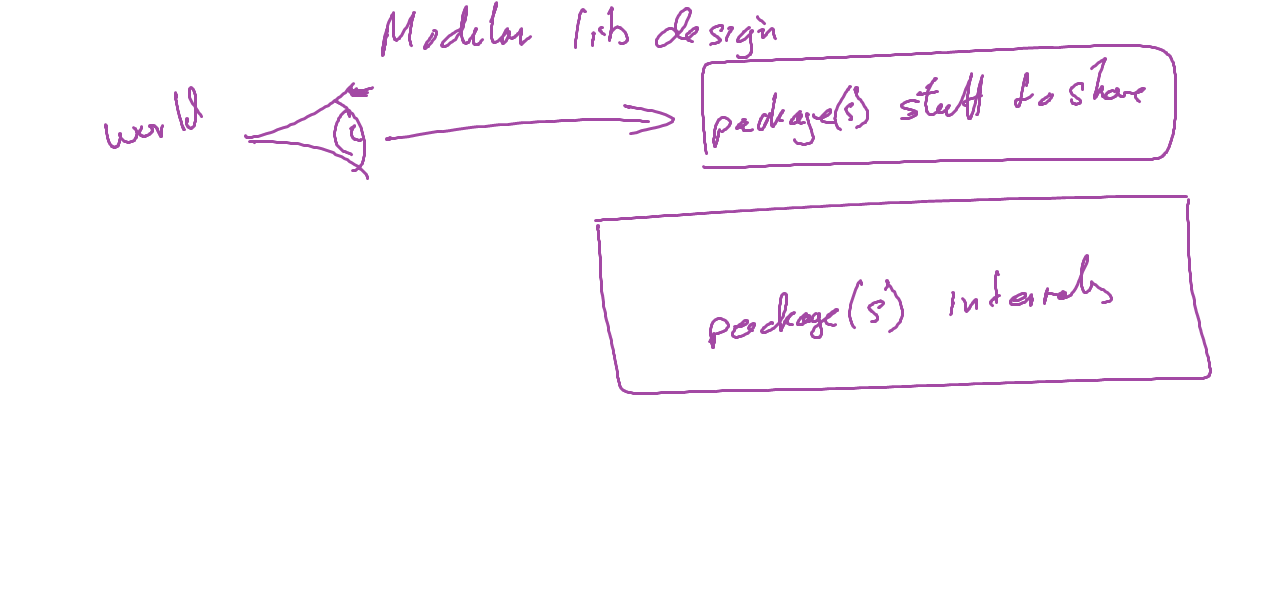 Modular lib design
world
package(s) stuff to share
package(s) internals